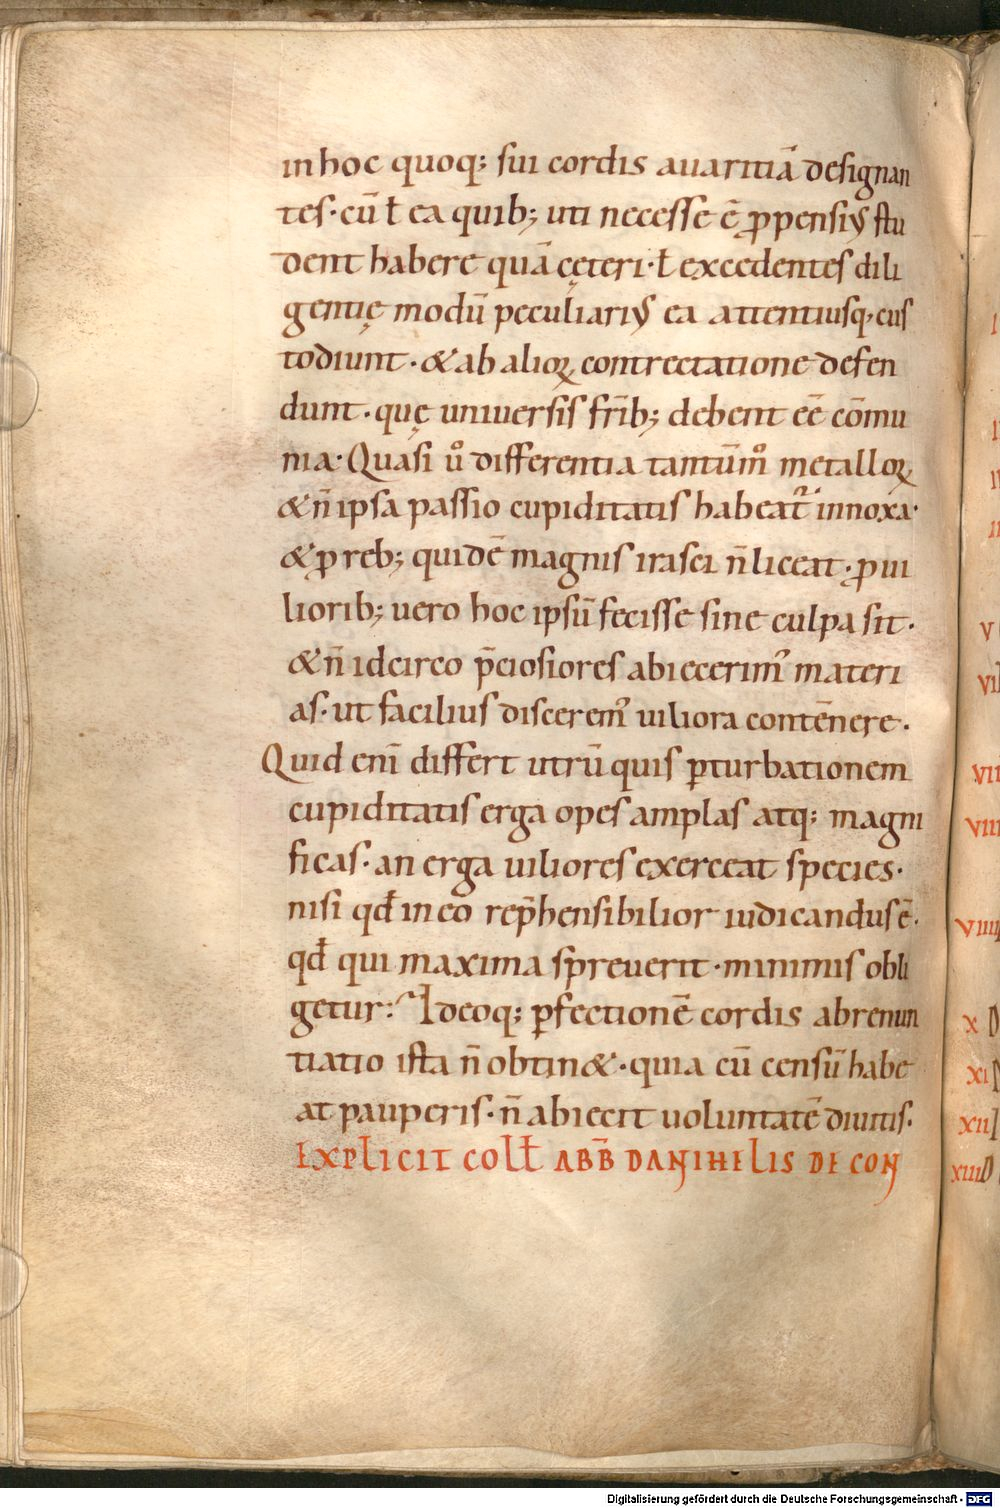 in hoc quoq; sui cordis auaritiā designan
tes· cū ł ea quib; uti necesse ē ꝓpensiꝰ stu
dent habere quā cęteri· ł excedentes dili
gentię modū peculiariꝰ ea attentiusq; cus
todiunt· & ab alioꝝ contrectatione defen
dunt· quę uniuersis fr̄ib; debent eē cōmu
nia· Quasi uͦ differentia tantūmͦ metalloꝝ
& n̄ ipsa passio cupiditatis habeat᷑ innoxa·
& ꝑ reb; quidē magnis irasci n̄ liceat· ꝑ ui
liorib; uero hoc ipsū fecisse sine culpa sit·
& n̄ idcirco p̄ciosiores abiecerimꝰ materi
as· ut facilius disceremꝰ uiliora contēnere·
Quid enī differt utrū quis ꝑturbationem
cupiditatis erga opes amplas atq; magni
ficas· an erga uiliores exerceat species·
nisi qđ in eo rep̄hensibilior iudicandus ē·
qđ qui maxima spreuerit· minimis obli
getur: Ideoq; ꝑfectionē cordis abrenun
tiatio ista n̄ obtin&· quia cū censū habe
at pauperis· n̄ abiecit uoluntatē diuitis·
EXPLICIT COLŁ ABB̄ DANIHELIS DE CON
V
VII
VIII
VIIII
X D
XI
XII
XIII D
Digitalisierung gefördert durch die Deutsche Forschungsgemeinschaft - DFG